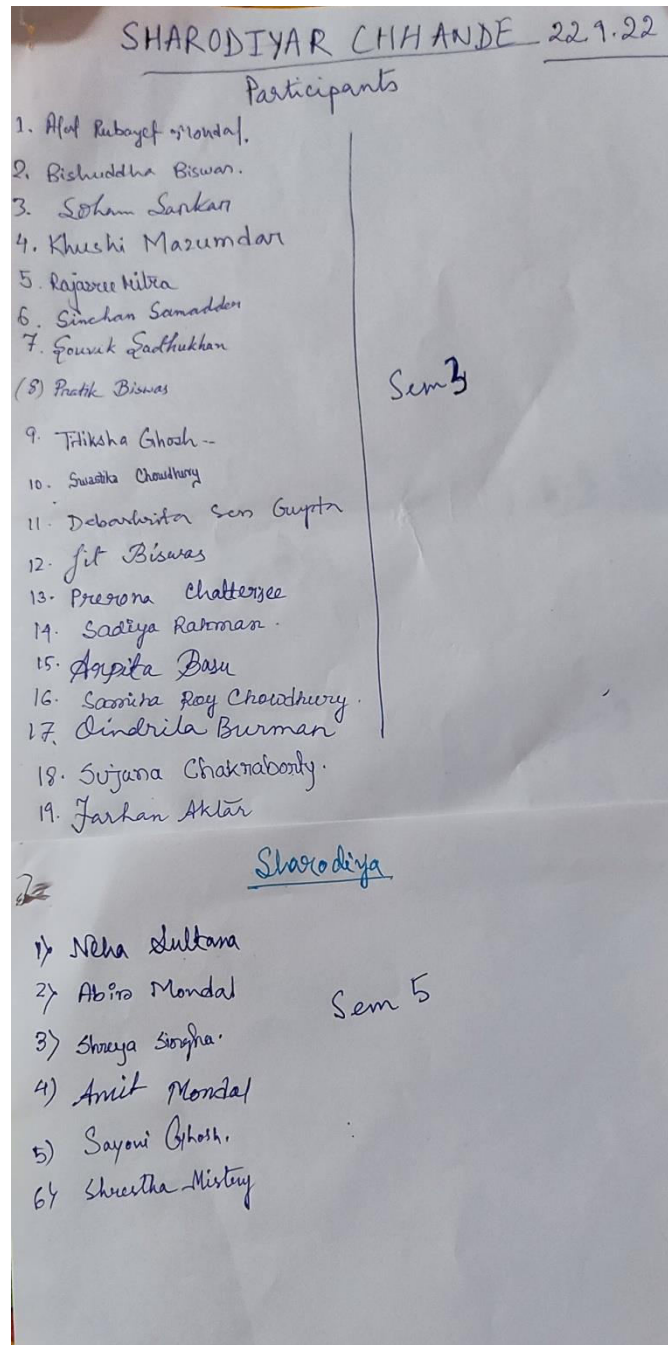 SHARODIYAR CHHANDE 22.9.22
Participants
1. Rubayet Mondal.
2. Bishuddha Biswas.
3. Soham Sarkar
4. Khushi Mazumdar
5. Rajasree Mitra
6. Sinchan Samadder
7. Souvik Sadhukhan
(8) Pratik Biswas
Sem 3
9. Titiksha Ghosh --
10. Swastika Chowdhury
11. Sen Gupta
12. Jit Biswas
13. Prerona Chatterjee
14. Sadiya Rahman.
15. Arpita Basu
16. Roy Chowdhury.
17. Oindrila Burman
18. Sujana Chakraborty.
19. Farhan Aktar
Sharodiya
1) Neha Sultana
2) Abir Mondal
Sem 5
3) Shreya Singha.
4) Amit Mondal
5) Sayoni Ghosh.
6) Shrestha Mistry